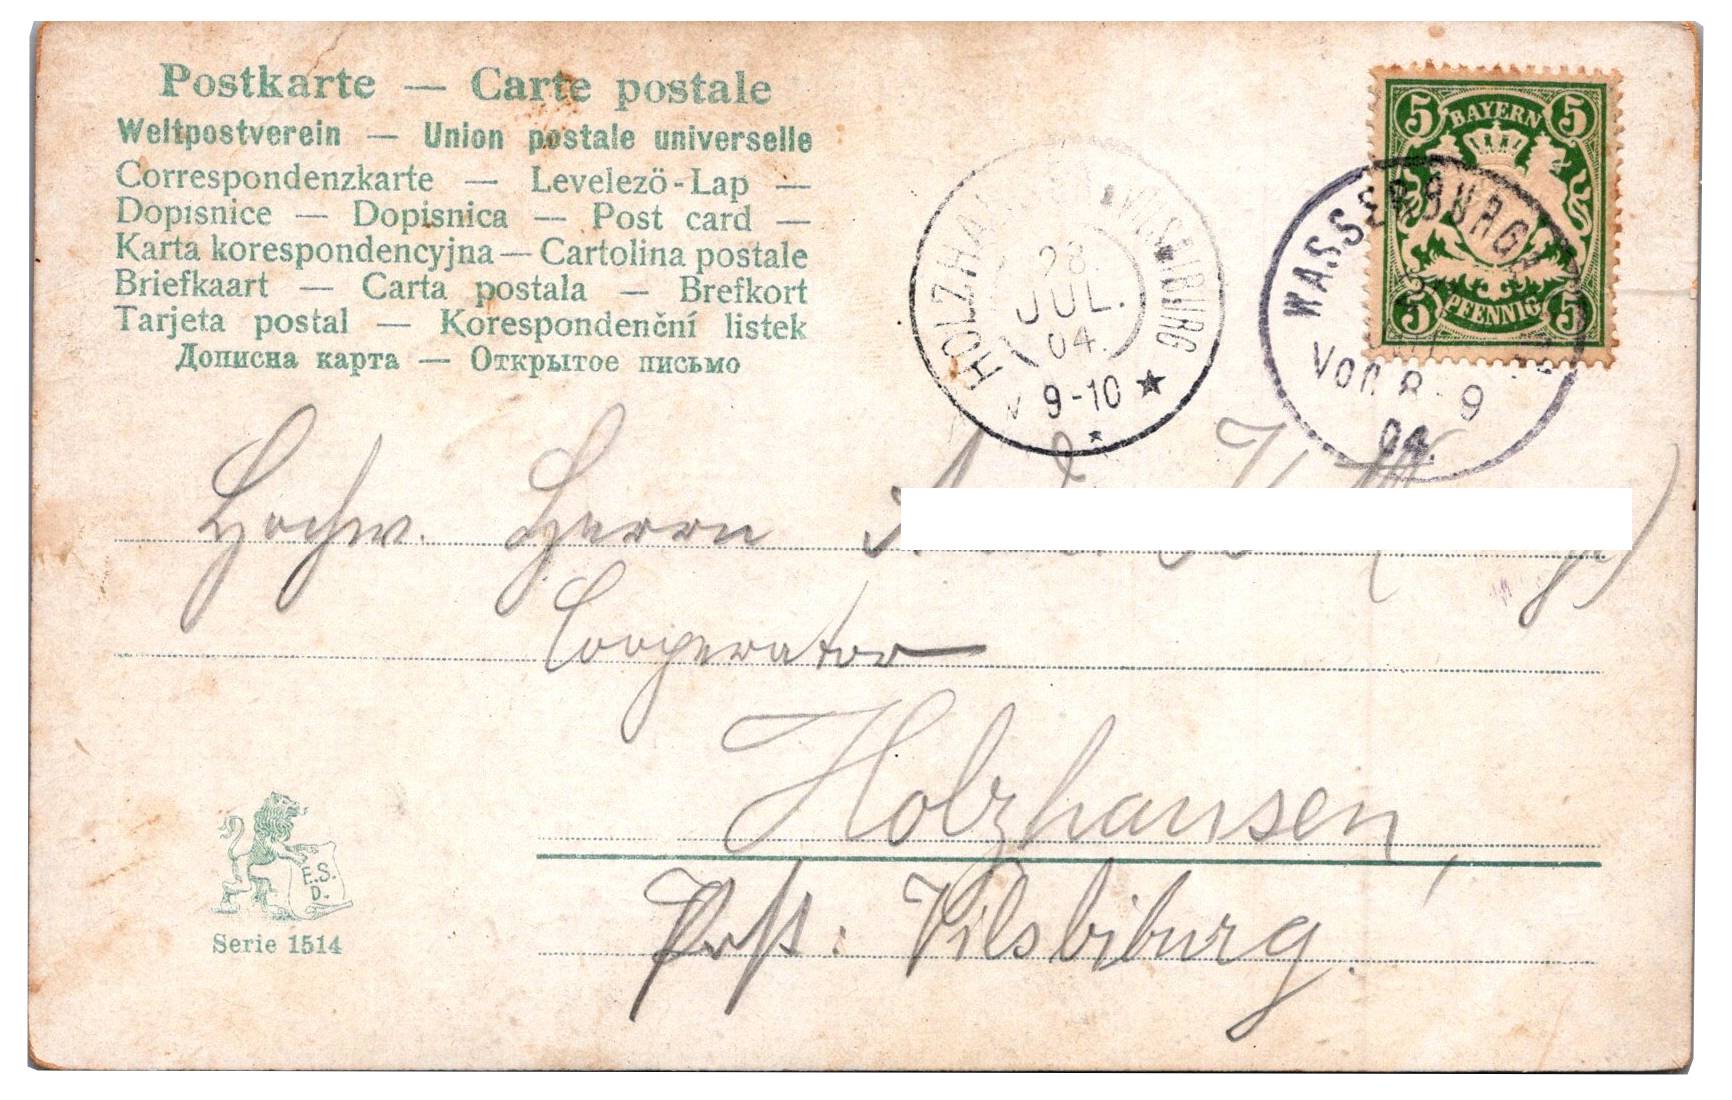 Postkarte — Carte postale
Weltpostverein — Union postale universelle
Correspondenzkarte — Levelezö-Lap —
Dopisnice — Dopisnica — Post card —
Karta korespondencyjna — Cartolina postale
Briefkaart — Carta postala — Brefkort
Tarjeta postal — Korespondenční listek
Дописна карта — Открытое письмо
VILSBIBURG
28.
JUL.
04.
V 9-10
5 BAYERN 5
5 PFENNIG 5
WASSERBURG
Vor. 8-9
04.
Hochw. Herrn
Cooperator
Holzhausen,
Post: Vilsbiburg.
E.S.
D.
Serie 1514